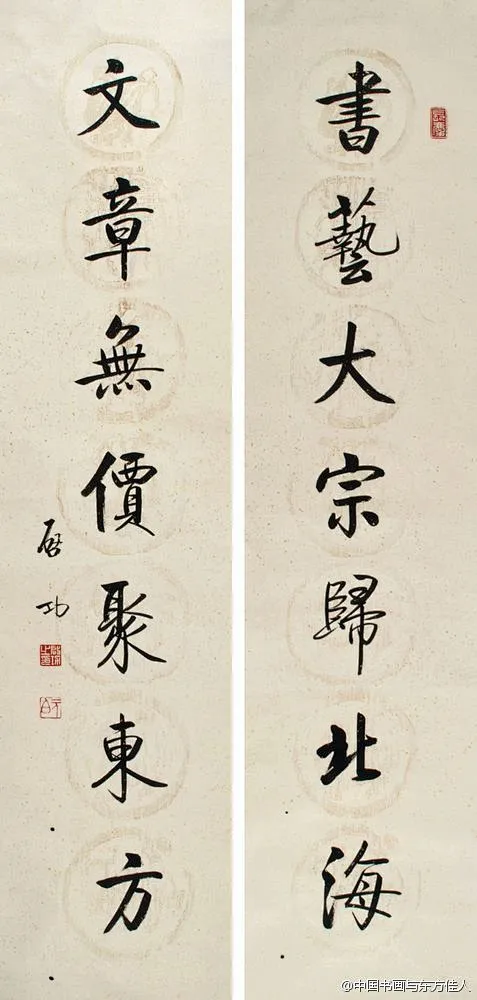 書藝大宗歸北海
文章無價聚東方
啓功
@中国书画与东方佳人